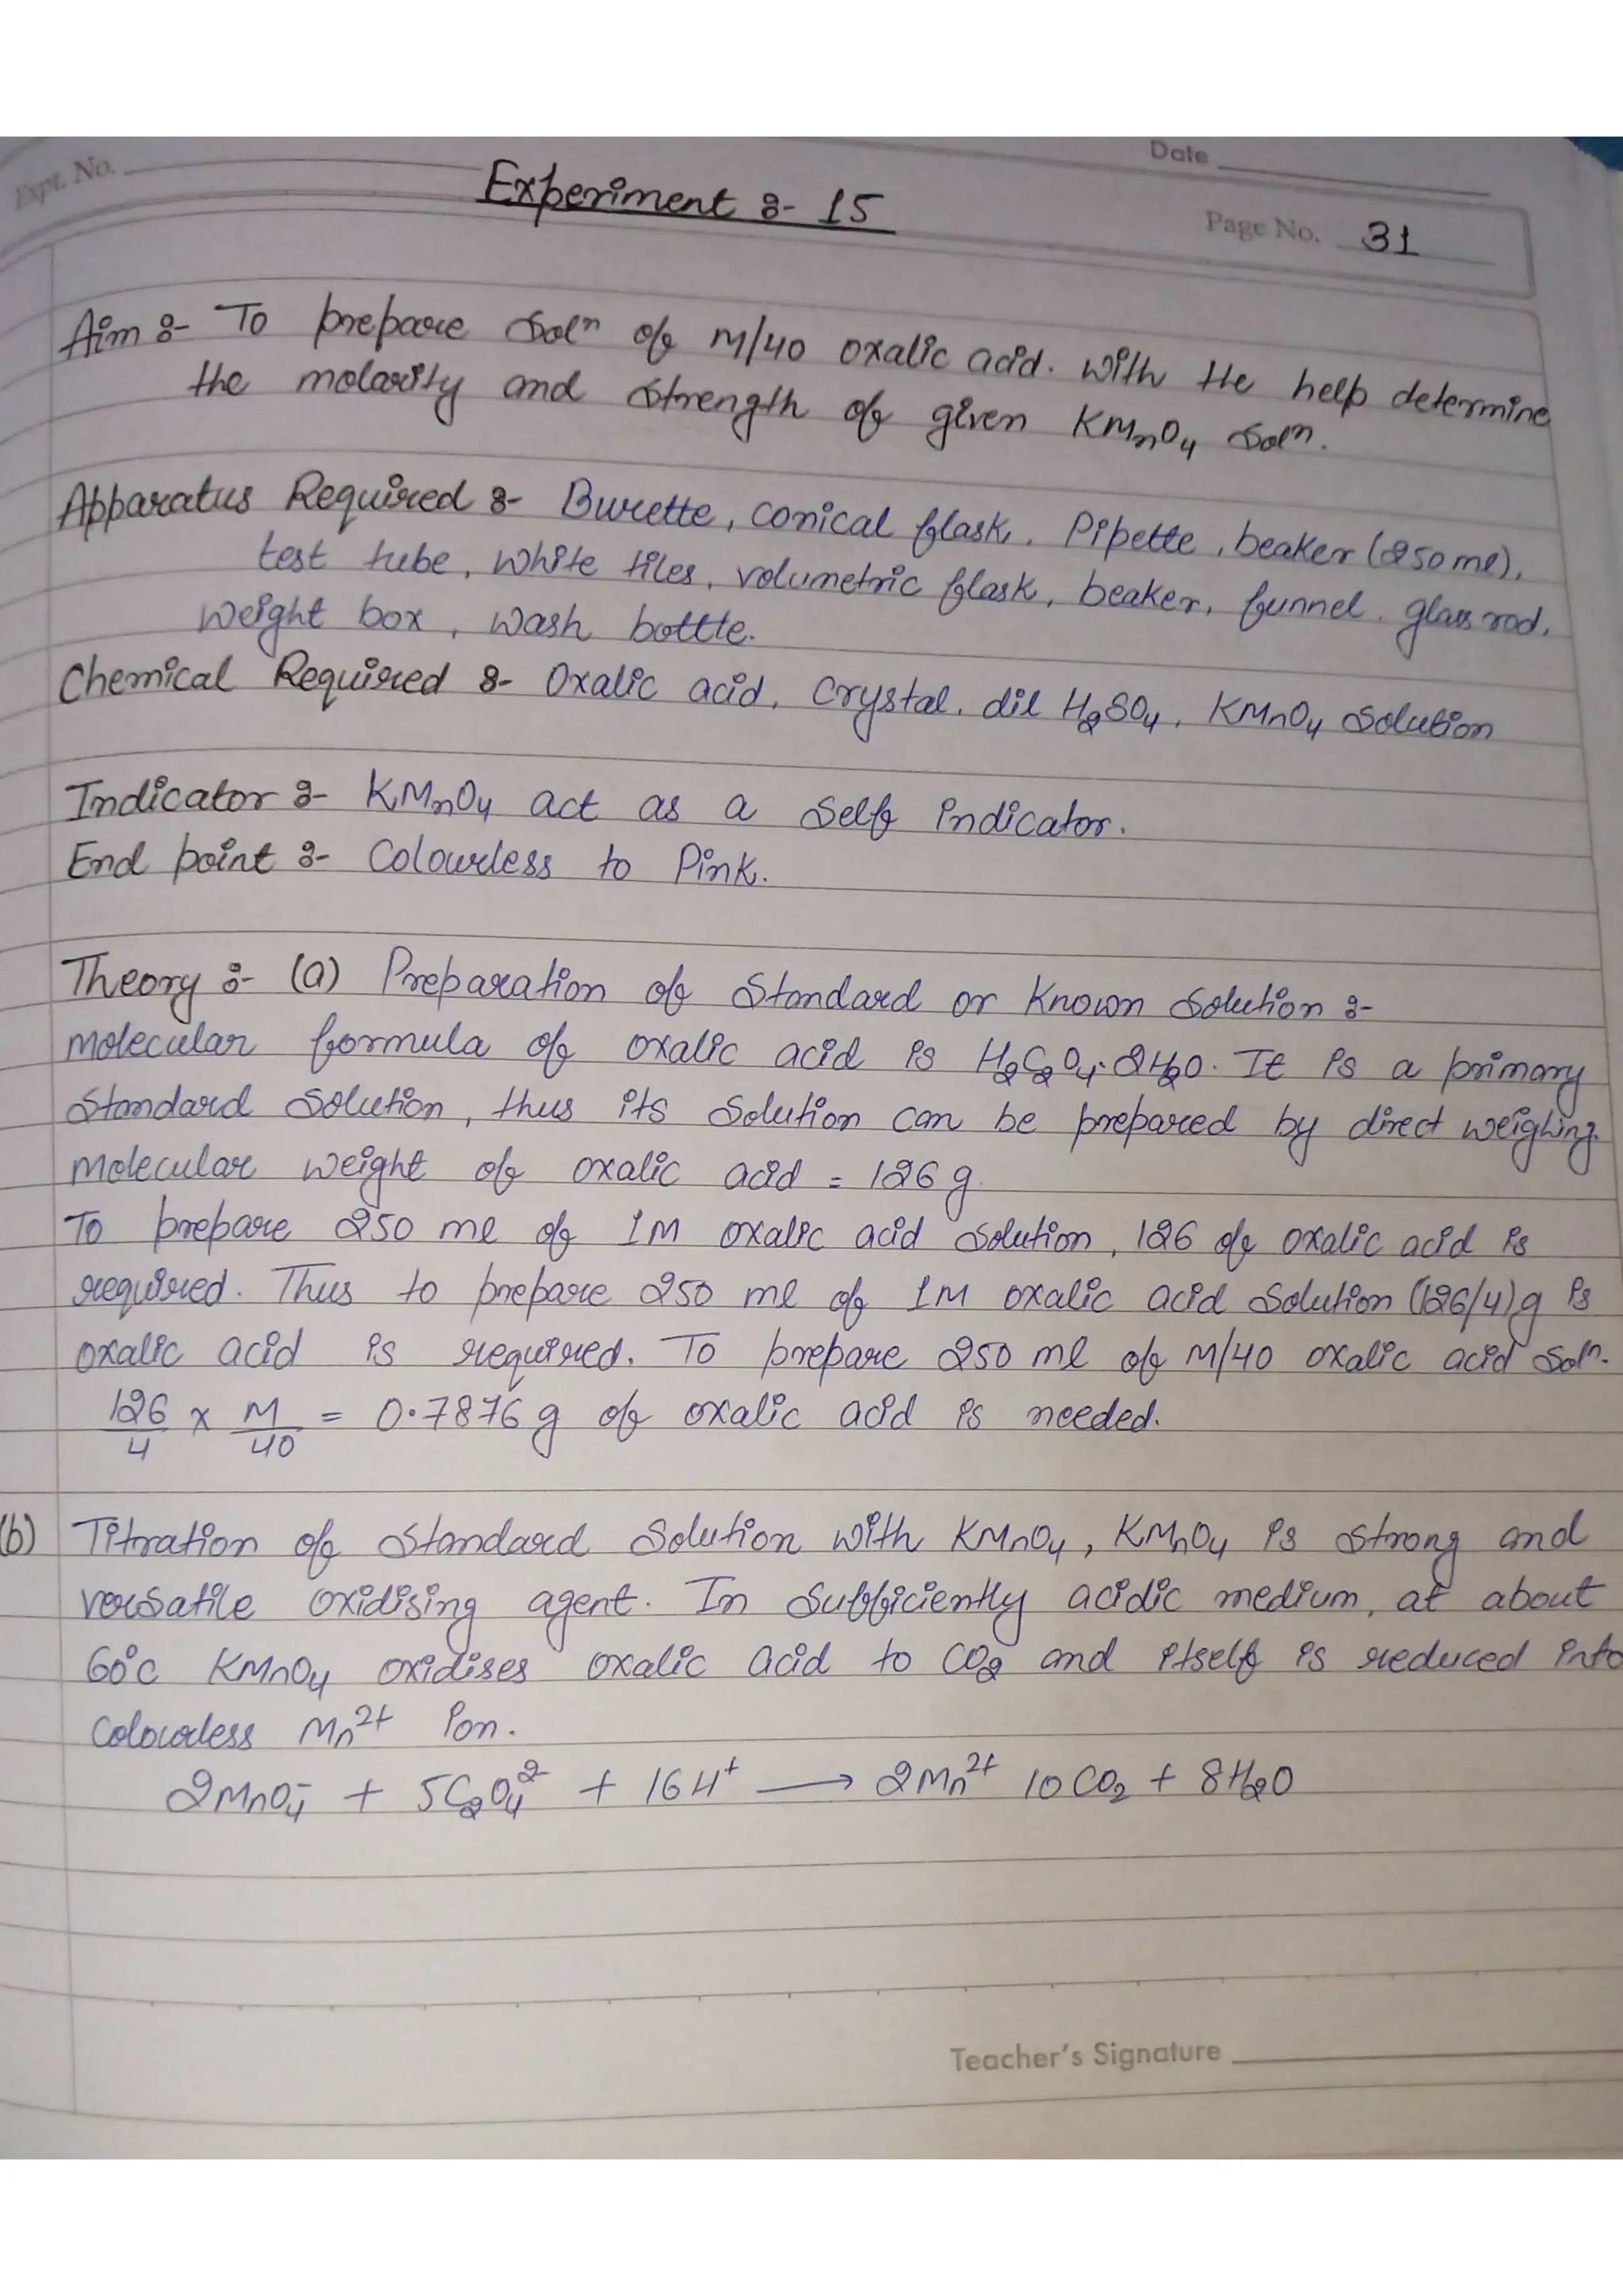 Date
Expt. No.
Experiment :- 15
Page No. 31
Aim :- To prepare solⁿ of M/40 oxalic acid. With the help determine
the molarity and strength of given KMnO₄ solⁿ.
Apparatus Required :- Burette, conical flask, Pipette, beaker (250 ml),
test tube, white tiles, volumetric flask, beaker, funnel, glass rod,
weight box, wash bottle.
Chemical Required :- Oxalic acid, Crystal, dil H₂SO₄, KMnO₄ solution
Indicator :- KMnO₄ act as a self indicator.
End point :- Colourless to Pink.
Theory :- (a) Preparation of Standard or Known Solution :-
molecular formula of oxalic acid is H₂C₂O₄.2H₂O. It is a primary
standard solution, thus its solution can be prepared by direct weighing.
molecular weight of oxalic acid = 126 g.
To prepare 250 ml of 1M oxalic acid solution, 126 of oxalic acid is
required. Thus to prepare 250 ml of 1M oxalic acid solution (126/4)g is
oxalic acid is required. To prepare 250 ml of M/40 oxalic acid solⁿ.
126/4 x M/40 = 0.7876 g of oxalic acid is needed.
(b) Titration of standard solution with KMnO₄, KMnO₄ is strong and
versatile oxidising agent. In sufficiently acidic medium, at about
60°C KMnO₄ oxidises oxalic acid to CO₂ and itself is reduced into
colourless Mn²⁺ ion.
2MnO₄⁻ + 5C₂O₄²⁻ + 16H⁺ ⟶ 2Mn²⁺ 10CO₂ + 8H₂O
Teacher's Signature